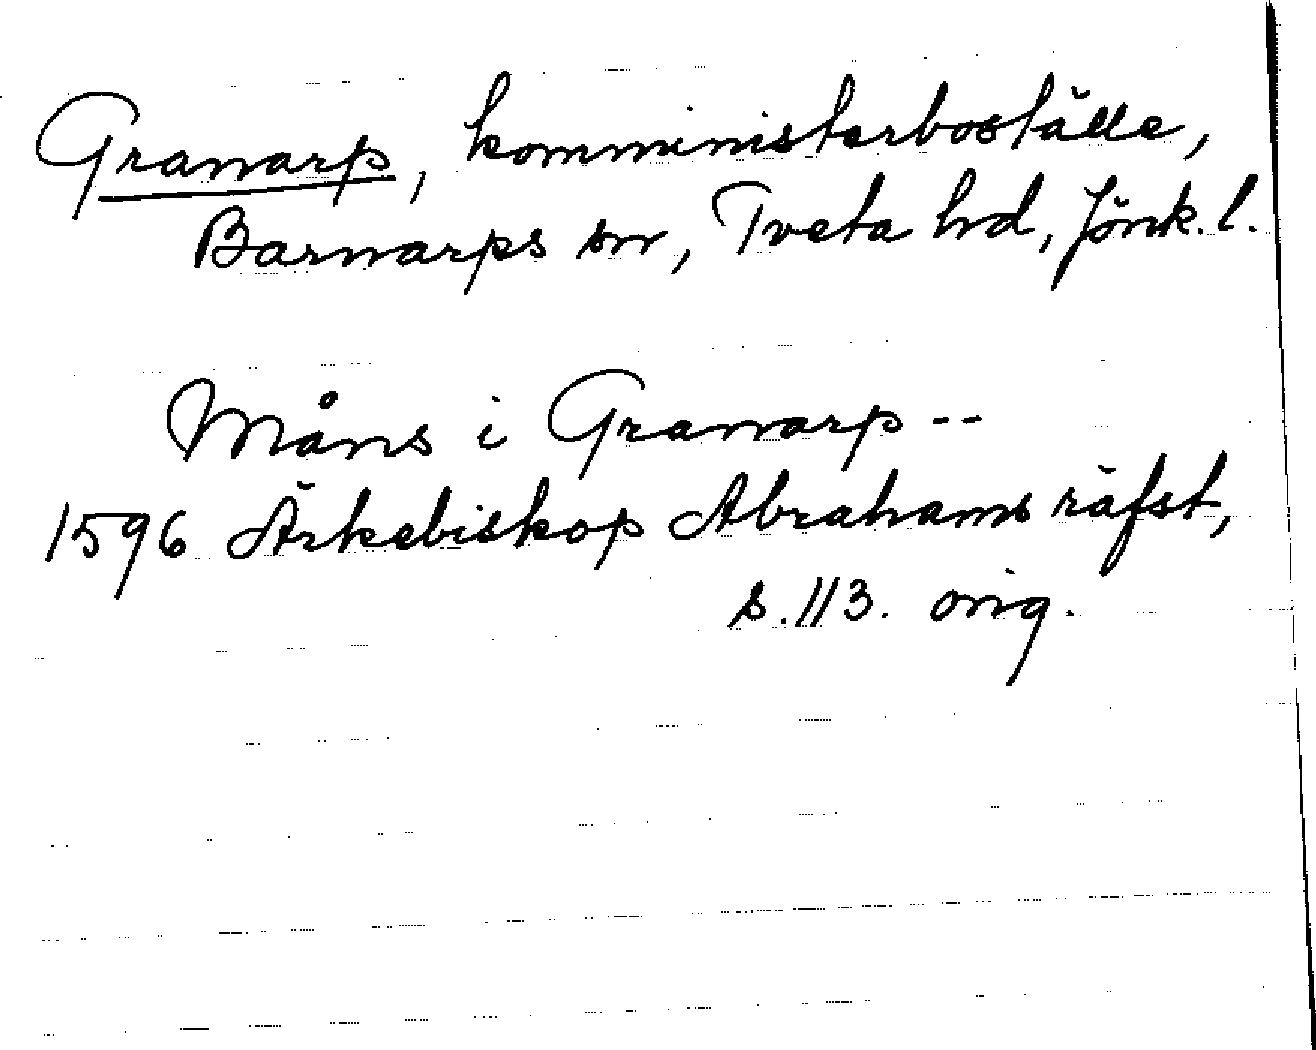 Granarp, komministerboställe,
Barnarps sn, Tveta hd, Jönk. l.
Måns i Granarp --
1596 Ärkebiskop Abrahams räfst,
s. 113. orig.